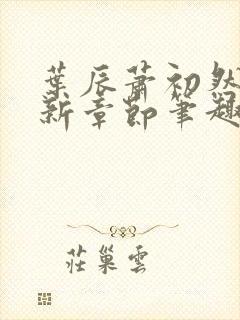 葉辰蕭初然
新章節筆趣
莊巢雲